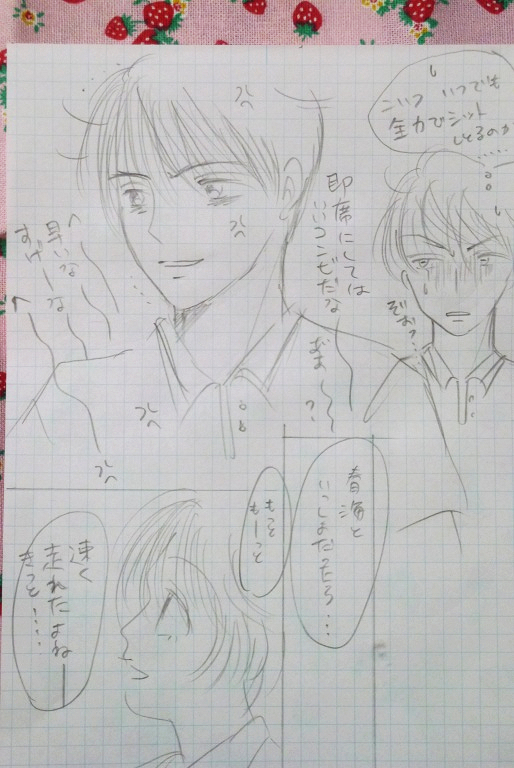 こいつ いつでも
全力でシット
しとるのか
……
ぞぉ…?
即席にしては
いいコンビだな
おぉ〜〜?
早いな
すげーな
春海と
いっしょだったら…
もっと
もーっと
速く
走れたよね
きっと……